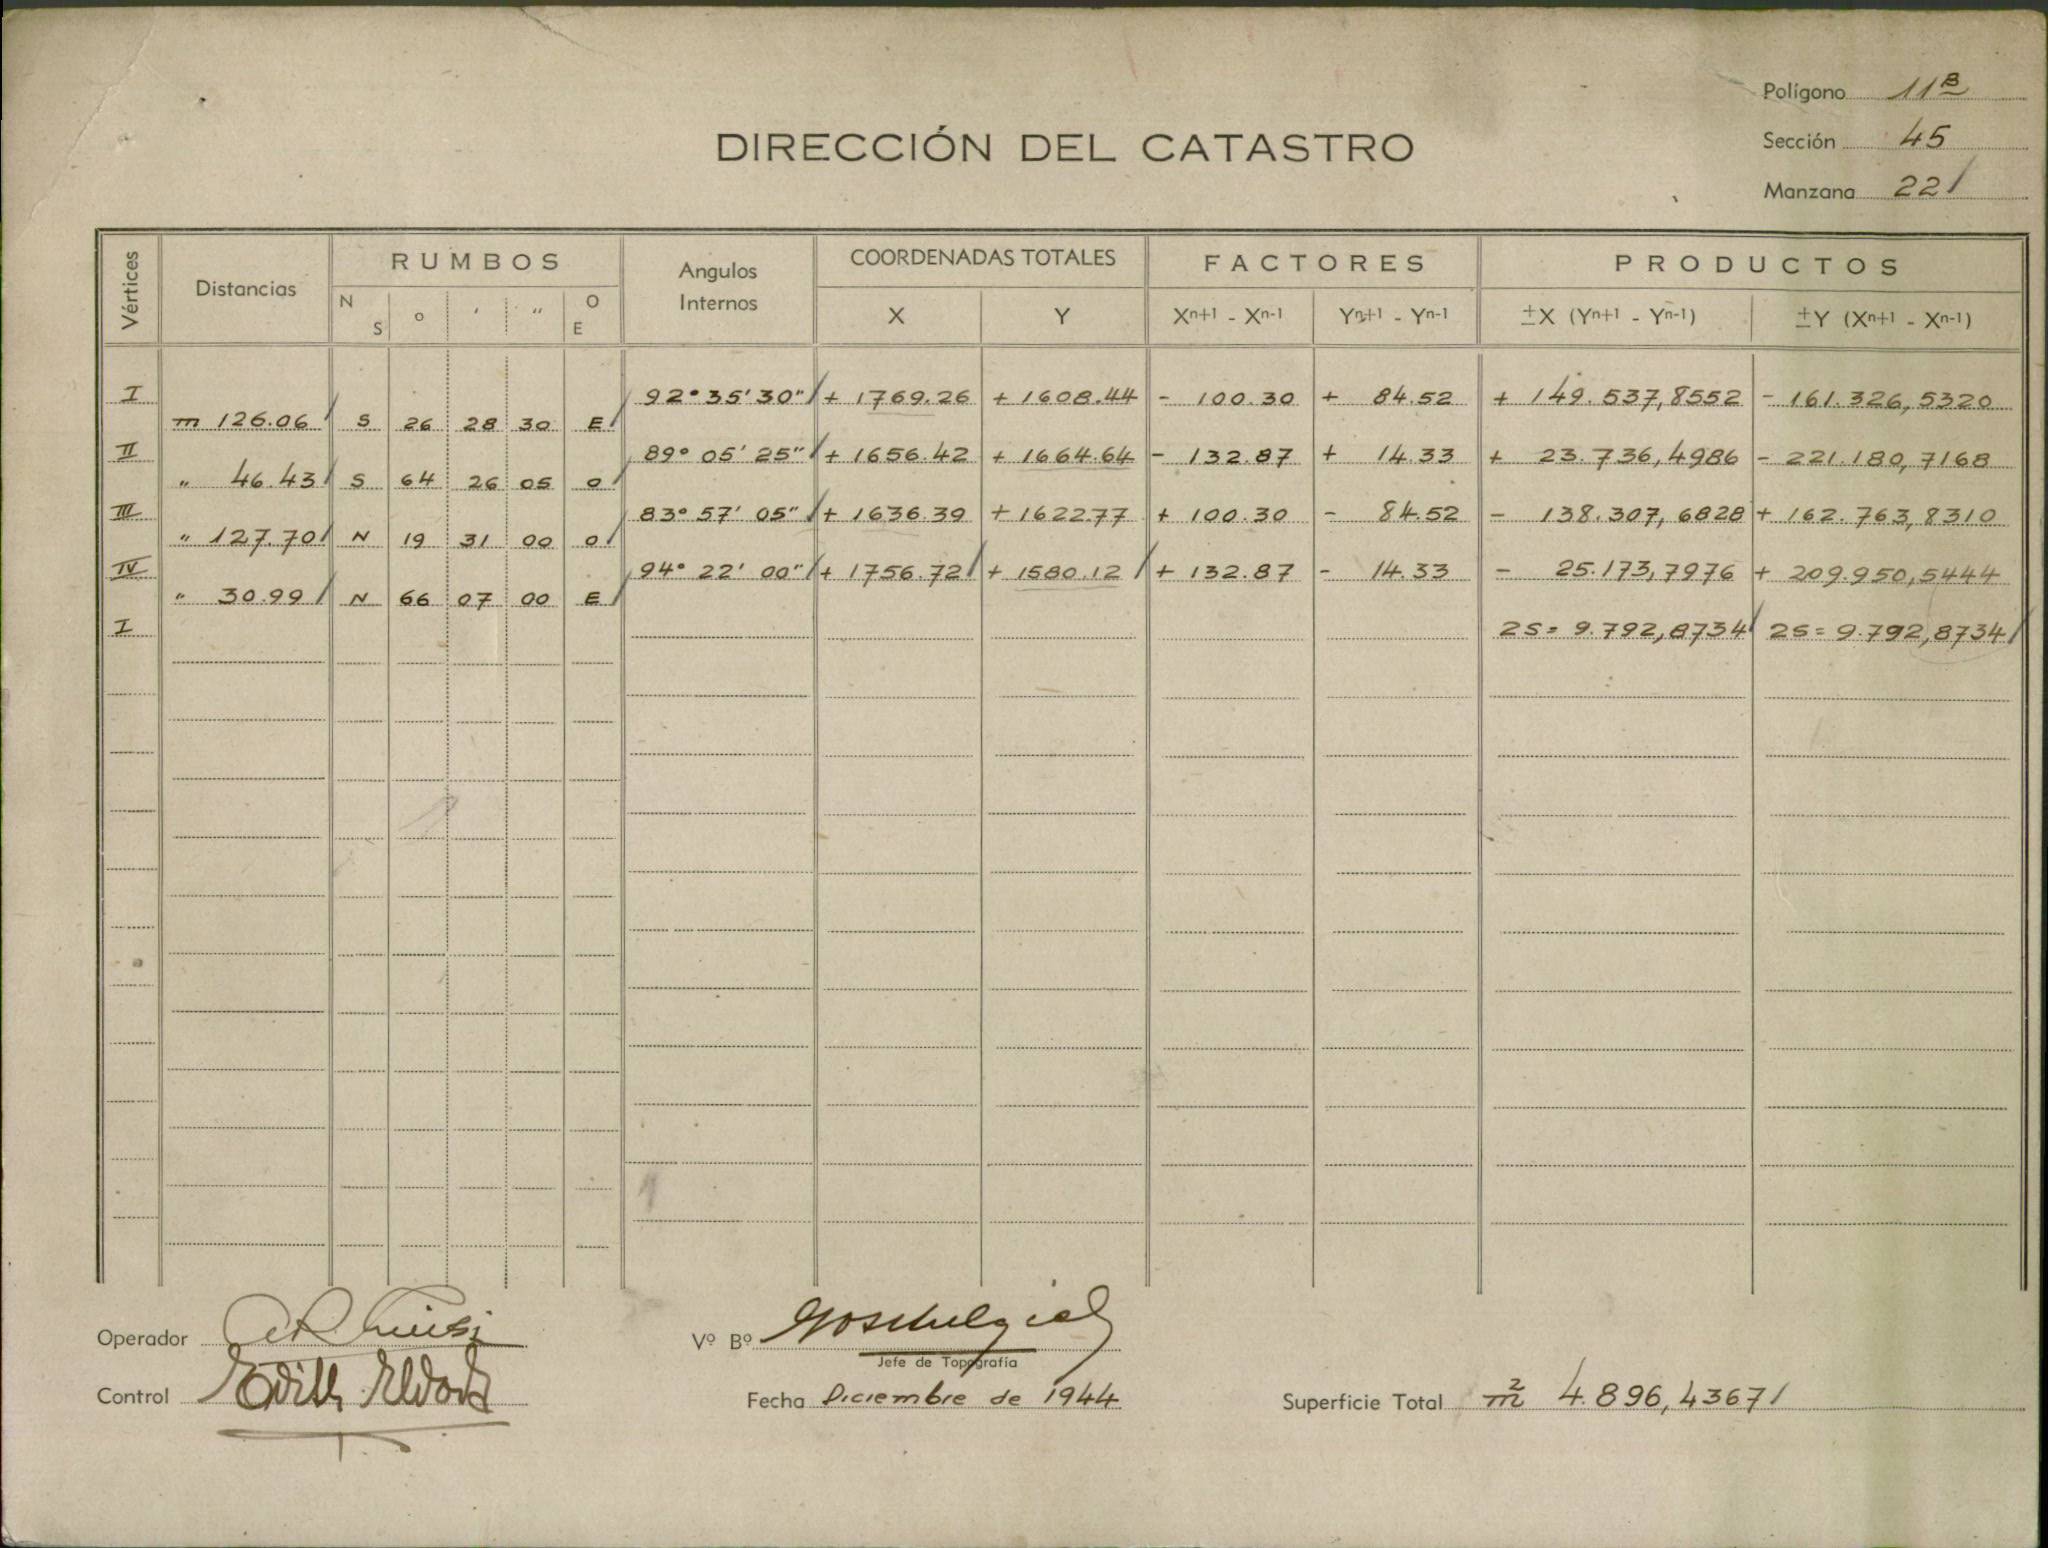 Polígono 11ᴮ
DIRECCIÓN DEL CATASTRO
Sección 45
Manzana 22
Vértices Distancias RUMBOS Angulos Internos COORDENADAS TOTALES FACTORES PRODUCTOS
N S ° ' " O E X Y Xⁿ⁺¹ - Xⁿ⁻¹ Yⁿ⁺¹ - Yⁿ⁻¹ ±X (Yⁿ⁺¹ - Yⁿ⁻¹) ±Y (Xⁿ⁺¹ - Xⁿ⁻¹)
I 92° 35' 30" + 1769.26 + 1608.44 - 100.30 + 84.52 + 149.537,8552 - 161.326,5320
m 126.06 S 26 28 30 E
II 89° 05' 25" + 1656.42 + 1664.64 - 132.87 + 14.33 + 23.736,4986 - 221.180,7168
" 46.43 S 64 26 05 O
III 83° 57' 05" + 1636.39 + 1622.77 + 100.30 - 84.52 - 138.307,6828 + 162.763,8310
" 127.70 N 19 31 00 O
IV 94° 22' 00" + 1756.72 + 1580.12 + 132.87 - 14.33 - 25.173,7976 + 209.950,5444
" 30.99 N 66 07 00 E
I 2S= 9.792,8734 2S= 9.792,8734
Operador
Vº Bº
Jefe de Topografía
Control Edith
Fecha Diciembre de 1944
Superficie Total m² 4.896,4367